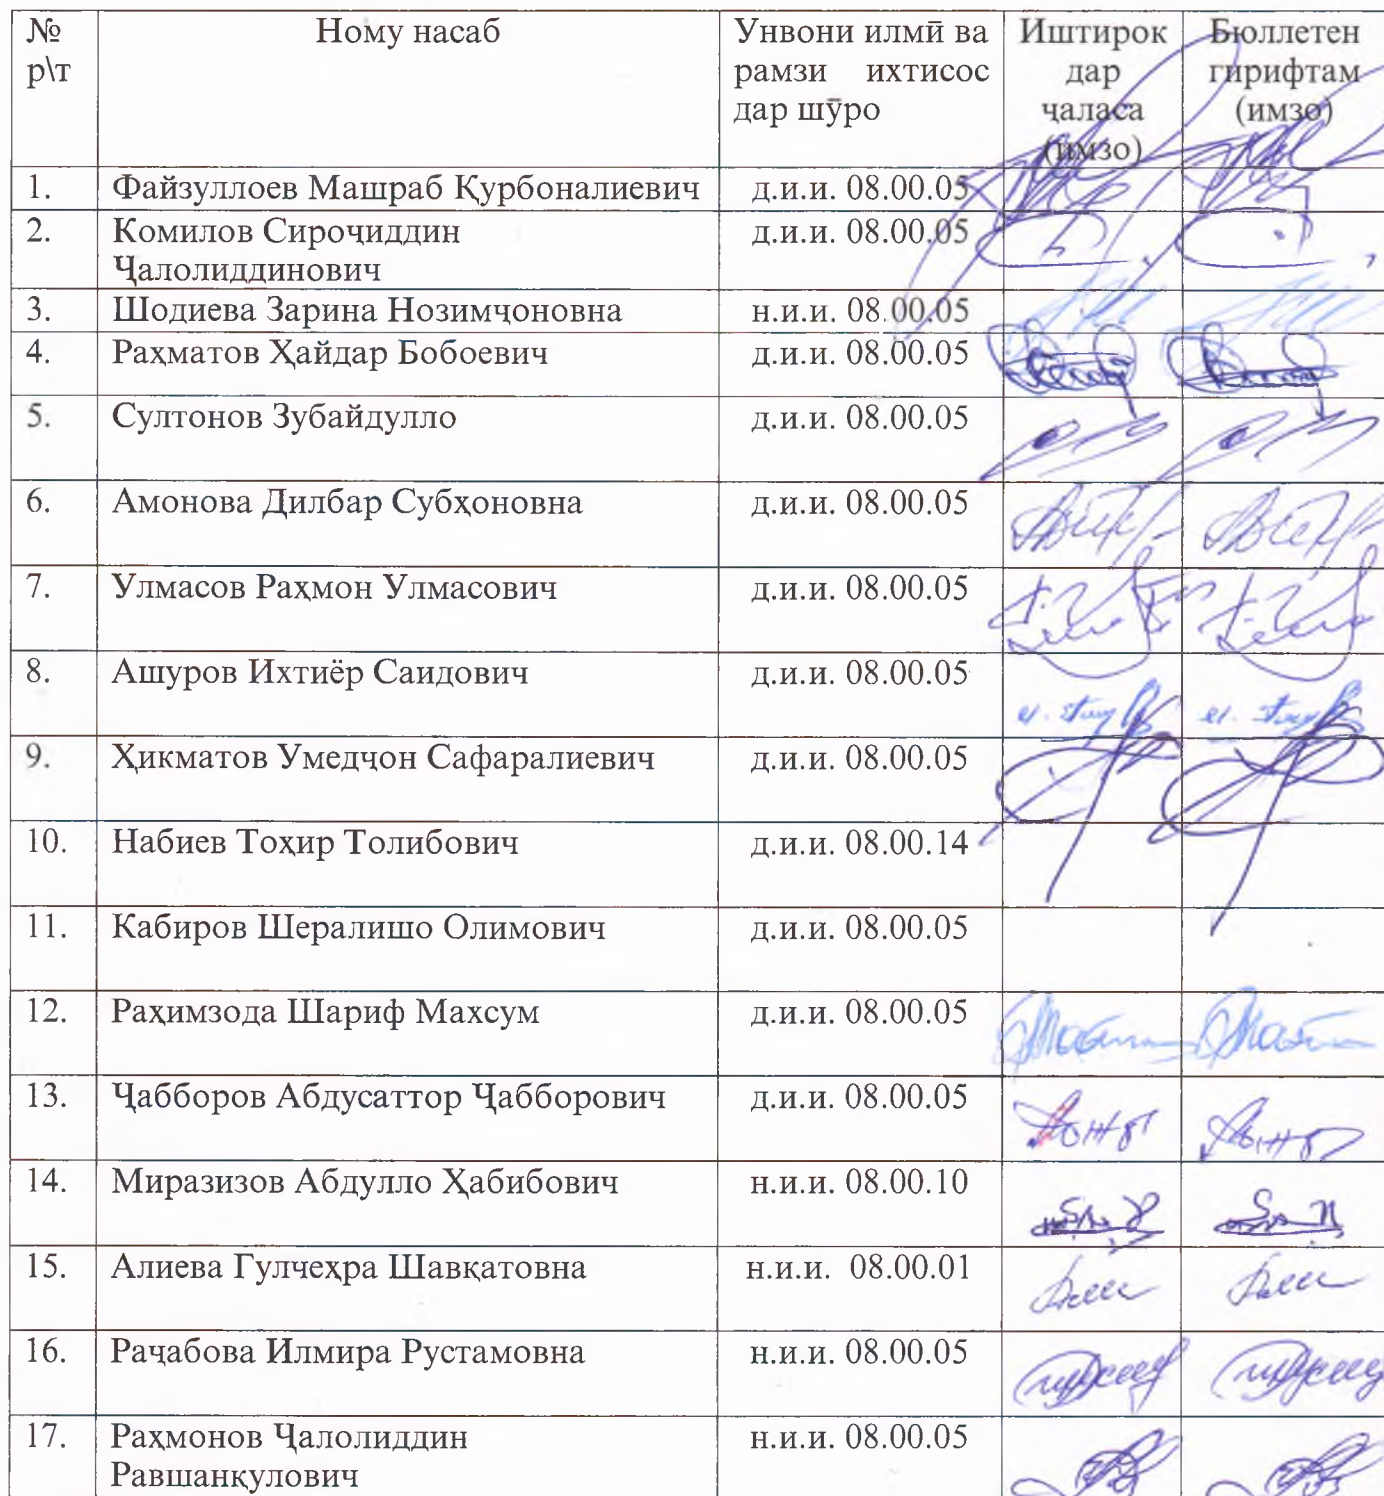 № р\т
Ному насаб
Унвони илмӣ ва рамзи ихтисос дар шӯро
Иштирок дар ҷаласа (имзо)
Бюллетен гирифтам (имзо)
1. Файзуллоев Машраб Қурбоналиевич д.и.и. 08.00.05
2. Комилов Сироҷиддин д.и.и. 08.00.05
Ҷалолиддинович
3. Шодиева Зарина Нозимҷоновна н.и.и. 08.00.05
4. Раҳматов Ҳайдар Бобоевич д.и.и. 08.00.05
5. Султонов Зубайдулло д.и.и. 08.00.05
6. Амонова Дилбар Субҳоновна д.и.и. 08.00.05
7. Улмасов Раҳмон Улмасович д.и.и. 08.00.05
8. Ашуров Ихтиёр Саидович д.и.и. 08.00.05
9. Ҳикматов Умедҷон Сафаралиевич д.и.и. 08.00.05
10. Набиев Тоҳир Толибович д.и.и. 08.00.14
11. Кабиров Шералишо Олимович д.и.и. 08.00.05
12. Раҳимзода Шариф Махсум д.и.и. 08.00.05
13. Ҷабборов Абдусаттор Ҷабборович д.и.и. 08.00.05
14. Миразизов Абдулло Ҳабибович н.и.и. 08.00.10
15. Алиева Гулчеҳра Шавқатовна н.и.и. 08.00.01
16. Раҷабова Илмира Рустамовна н.и.и. 08.00.05
17. Раҳмонов Ҷалолиддин н.и.и. 08.00.05
Равшанқулович